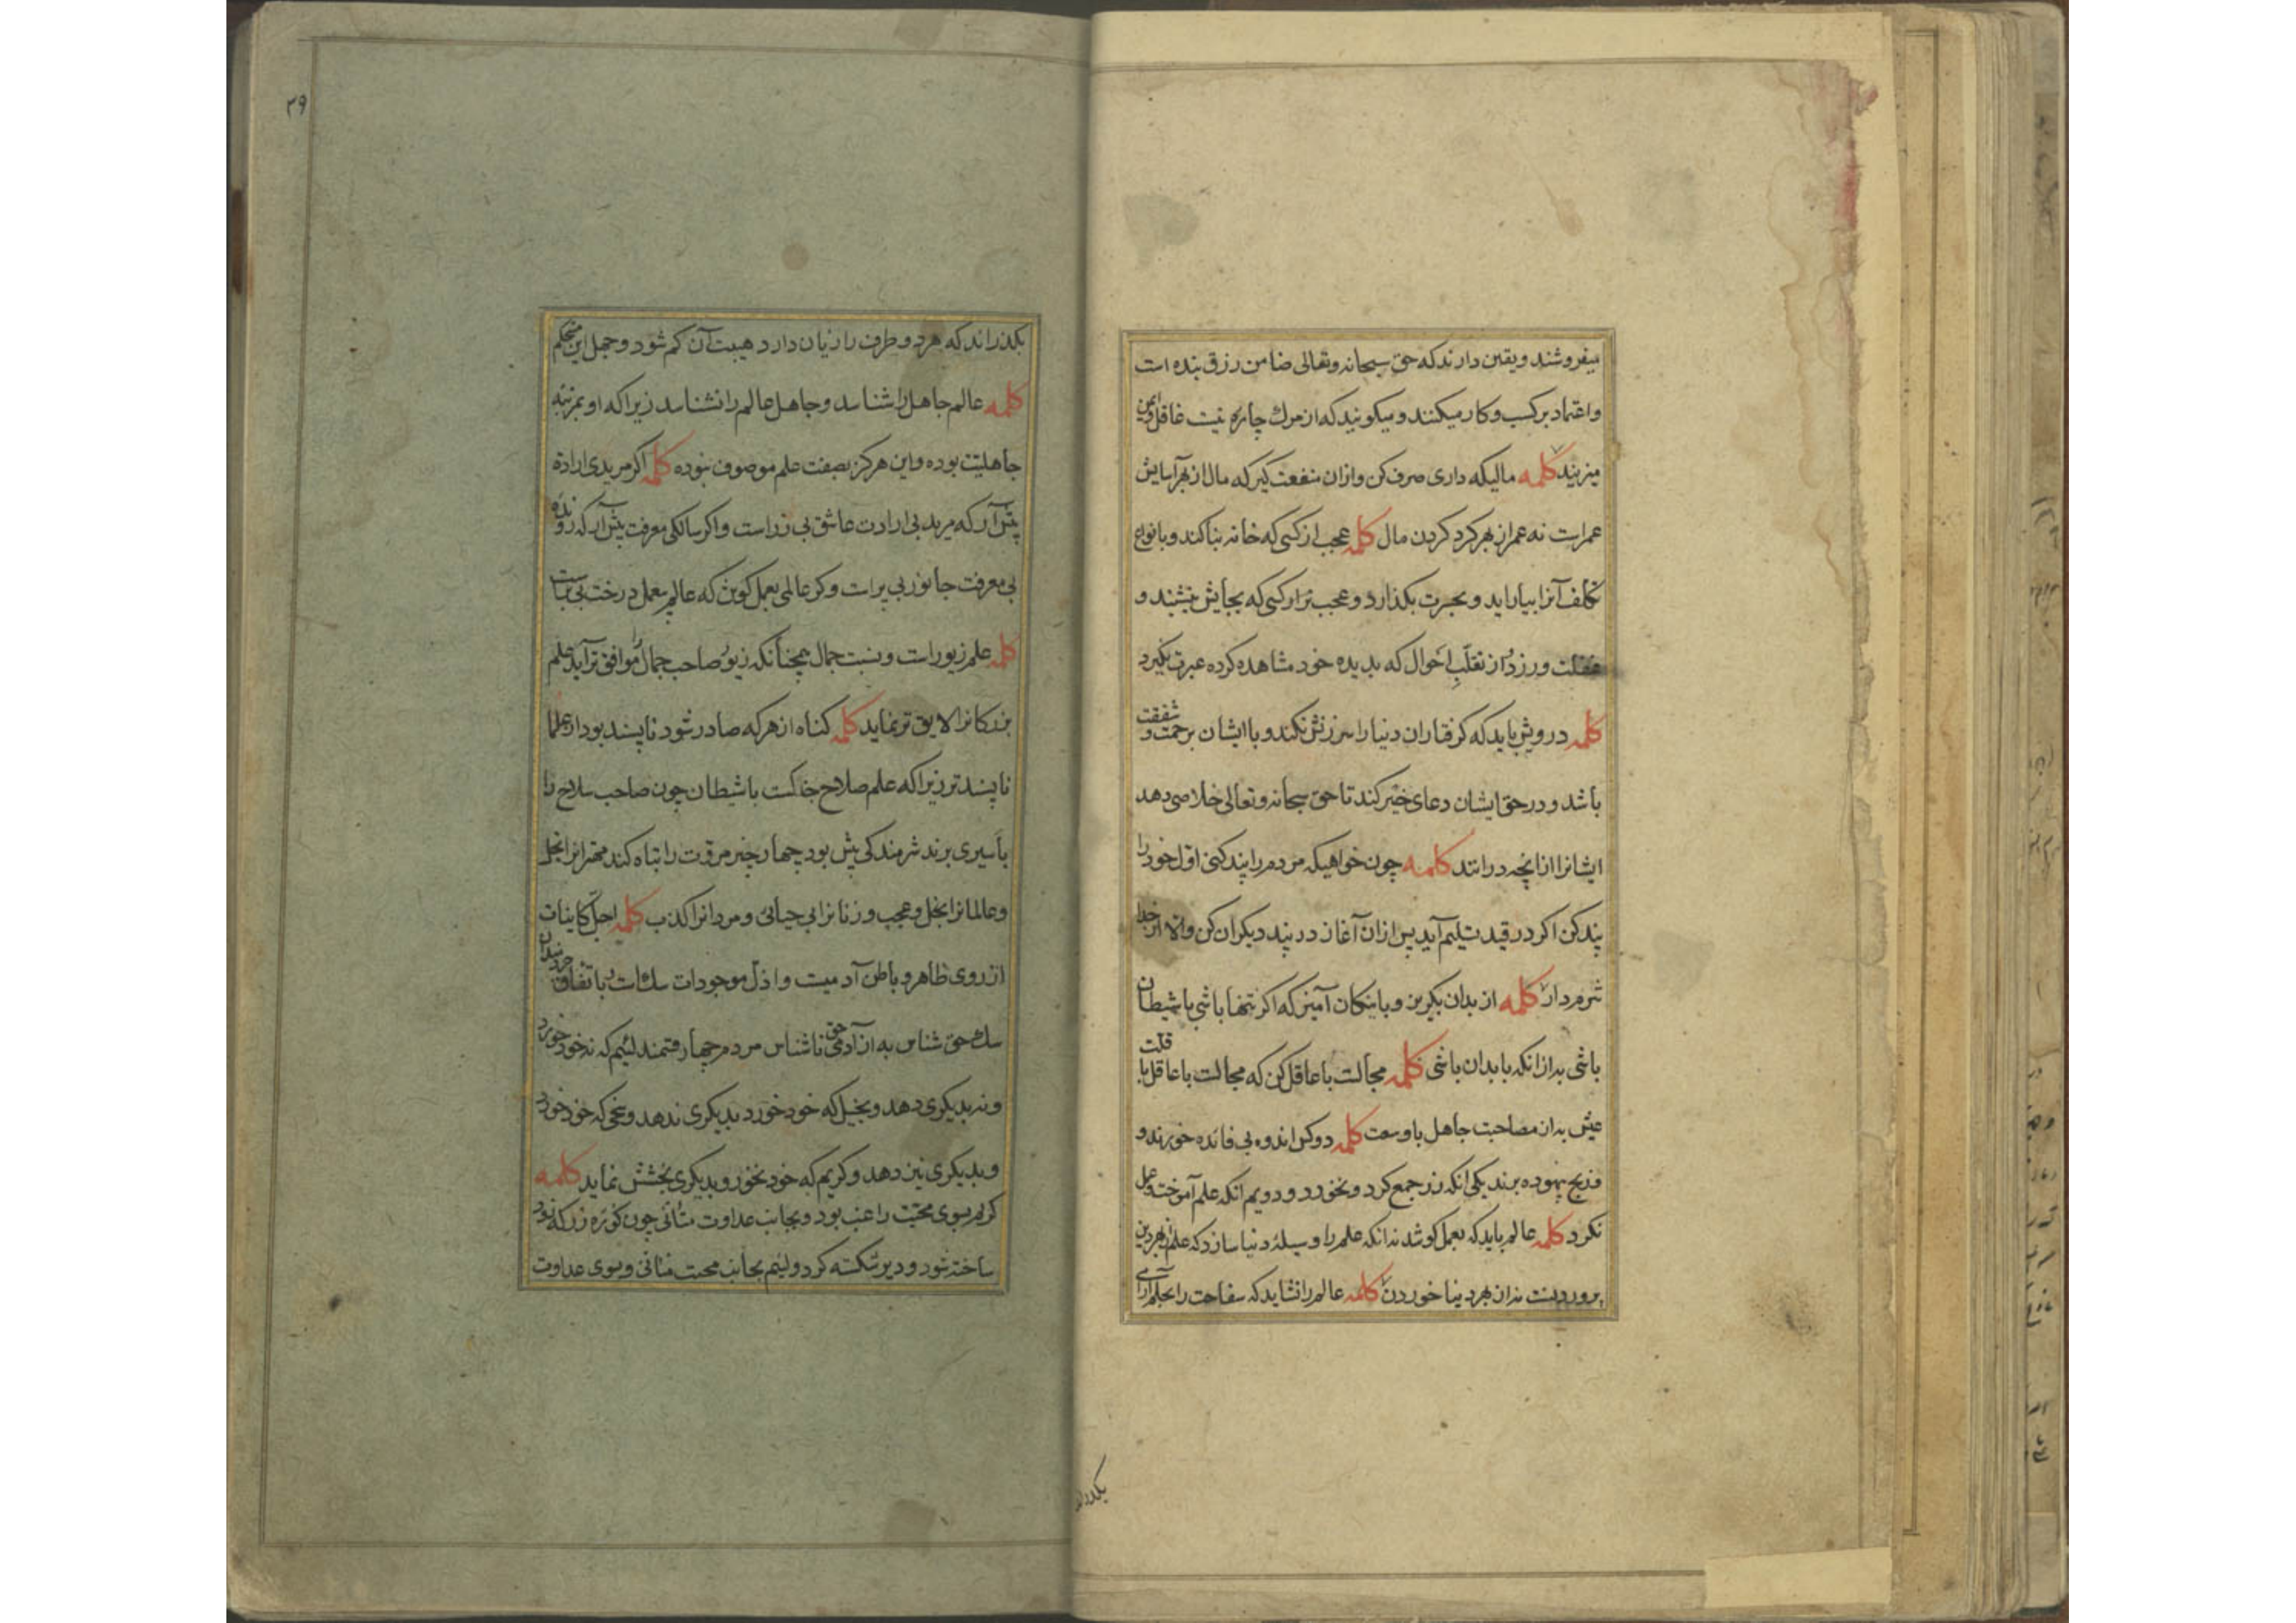 میفروشند و یقین دارند که حق سبحانه وتعالی ضامن رزق بنده است
واعتماد بر کسب و کار میکنند و میکویند که از مرك چاره نیست غافل وایمن
میزیند کلمه مالیکه داری صرف کن وازان منفعت کیر که مال از بهر آسایش
عمراست نه عمر از بهر کرد کردن مال کلمه عجب از کسی که خانه بنا کند و بانواع
تکلف آنرا بیاراید و بحسرت بکذارد و عجب تر از کسی که بجایش نشیند و
غفلت ورزد و از تقلّبِ احوال که بدیده خود مشاهده کرده عبرت نکیرد
کلمه درویش باید که کرفتاران دنیا را سرزنش نکند و با ایشان برحمت و شفقت
باشد و در حق ایشان دعای خیر کند تا حق سبحانه وتعالی خلاصی دهد
ایشانرا ازانچه درانند کلمه چون خواهیکه مردم را پند کنی اوّل خود را
پند کن اکر در قید تسلیم آید پس ازان آغاز در پند دیکران کن والا از خدا
شرم دار کلمه از بدان بکریز و با نیکان آمیز که اکر تنها باشی با شیطان
باشی به ازانکه با بدان باشی کلمه مجالست با عاقل کن که مجالست با عاقل با قلت
عیش به از مصاحبت جاهل با وسعت کلمه دو کس اندوه بی فائده خورند و
رنج بیهوده برند یکی انکه زر جمع کرد و نخورد و دویم انکه علم آموخت وعمل
نکرد کلمه عالم باید که بعمل کوشد نه انکه علم را وسیلهٔ دنیا سازد که علم از بهر دین
پروردنست نه از بهر دنیا خوردن کلمه عالم را نشاید که سفاهت را بحلم آرای
بکذراند
۳۹
بکذراند که هر دو طرف را زیان دارد هیبت آن کم شود و جهل این مستحکم
کلمه عالم جاهل را شناسد و جاهل عالم را نشناسد زیرا که او بمرتبه
جاهلیّت بوده و این هرکز بصفت علم موصوف نبوده کلمه اکر مریدی ارادة
پیش آر که مرید بی ارادت عاشق بی زر است و اکر سالکی معرفت پیش آر که رونده
بی معرفت جانور بی پر است و کر عالمی بعمل کوش که عالم بیعمل درخت بی بر است
کلمه علم زیور است و نسبت جمال همچنانکه زیور صاحب جمال را موافق تر آید علم
بزرکانرا لایق تر نماید کلمه کناه از هر که صادر شود ناپسند بود از علما
ناپسندتر زیرا که علم صلاح جنکست با شیطان چون صاحب سلاح را
بأسیری برند شرمندکی بیش بود چهار چیز مروّت را تباه کند مهترانرا بخل
وعالمانرا بخل و عجب و زنانرا بی حیائی و مردانرا کذب کلمه اجلّ کاینات
از روی ظاهر و باطن آدمیست و اذلّ موجودات سك است و باتفاق خردمندان
سك حق شناس به از آدمی حق ناشناس مردم چهار قسمند لئیم که نه خود خورد
و نه بدیکری دهد و بخیل که خود خورد بدیکری ندهد و سخی که خود خورد
و بدیکری نیز دهد و کریم که خود نخورد و بدیکری بخشش نماید کلمه
کریم بسوی محبّت راغب بود و بجانب عداوت متأنی چون کوزه زر که زود
ساخته شود و دیر شکسته کردد ولئیم بجانب محبت متأنی و بسوی عداوت